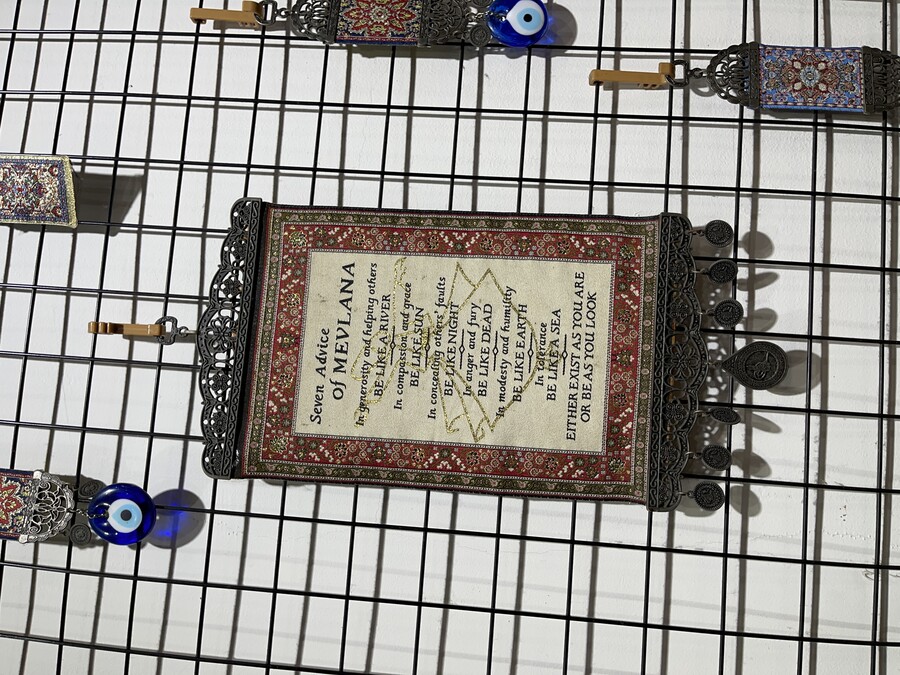 Seven Advice
of MEVLANA
In generosity and helping others
BE LIKE A RIVER
In compassion and grace
BE LIKE SUN
In concealing others' faults
BE LIKE NIGHT
In anger and fury
BE LIKE DEAD
In modesty and humility
BE LIKE EARTH
In tolerance
BE LIKE A SEA
EITHER EXIST AS YOU ARE
OR BE AS YOU LOOK